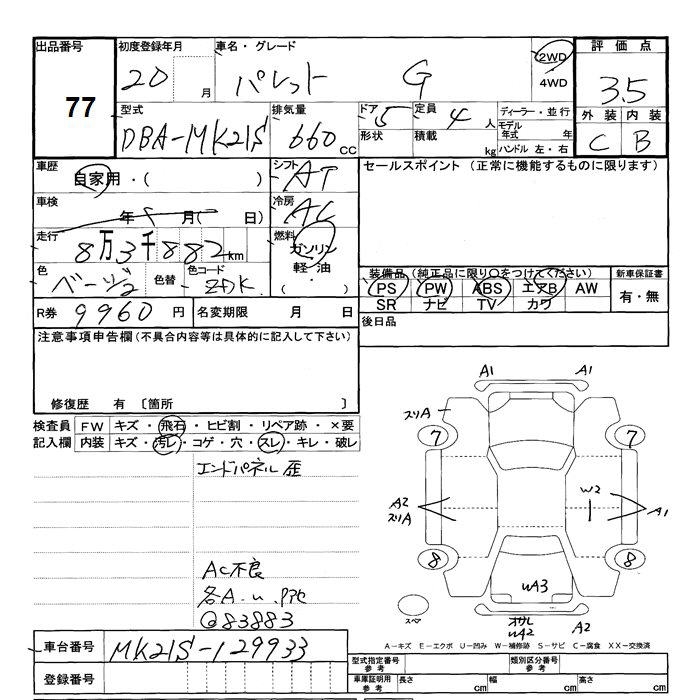 出品番号 初度登録年月 車名・グレード 2WD 評価点
77 20 月 パレット G 4WD 3.5
型式 排気量 ドア 定員 ディーラー・並行 外装 内装
DBA-MK21S 660 cc 5 4 人 モデル年式 年 C B
形状 積載 kg ハンドル 左・右
車歴 自家用・( ) シフト AT セールスポイント (正常に機能するものに限ります)
車検 年 月( 日) 冷房 AC
走行 8万3千882km 燃料 ガソリン
軽・油
( ・ )
色 ベージュ2 色替 色コード ZDK 装備品 (純正品に限り○をつけてください) 新車保証書
PS PW ABS エアB AW 有・無
SR ナビ TV カワ
R券 9960 円 名変期限 月 日 後日品
注意事項申告欄(不具合内容等は具体的に記入して下さい)
修復歴 有 〔箇所 〕
検査員 FW キズ・飛石・ヒビ割・リペア跡・×要
記入欄 内装 キズ・汚レ・コゲ・穴・スレ・キレ・破レ
エンドパネル 歪
AC不良
@83883
A1 A1
スリA
7 7
A2 W2
スリA A1
8 8
UA3
スペア
A2
A-キズ E-エクボ U-凹み W-補修跡 S-サビ C-腐食 XX-交換済
車台番号 MK21S-129933 型式指定番号 参考 類別区分番号 参考
登録番号 車庫証明用 参考 長さ cm 幅 cm 高さ cm